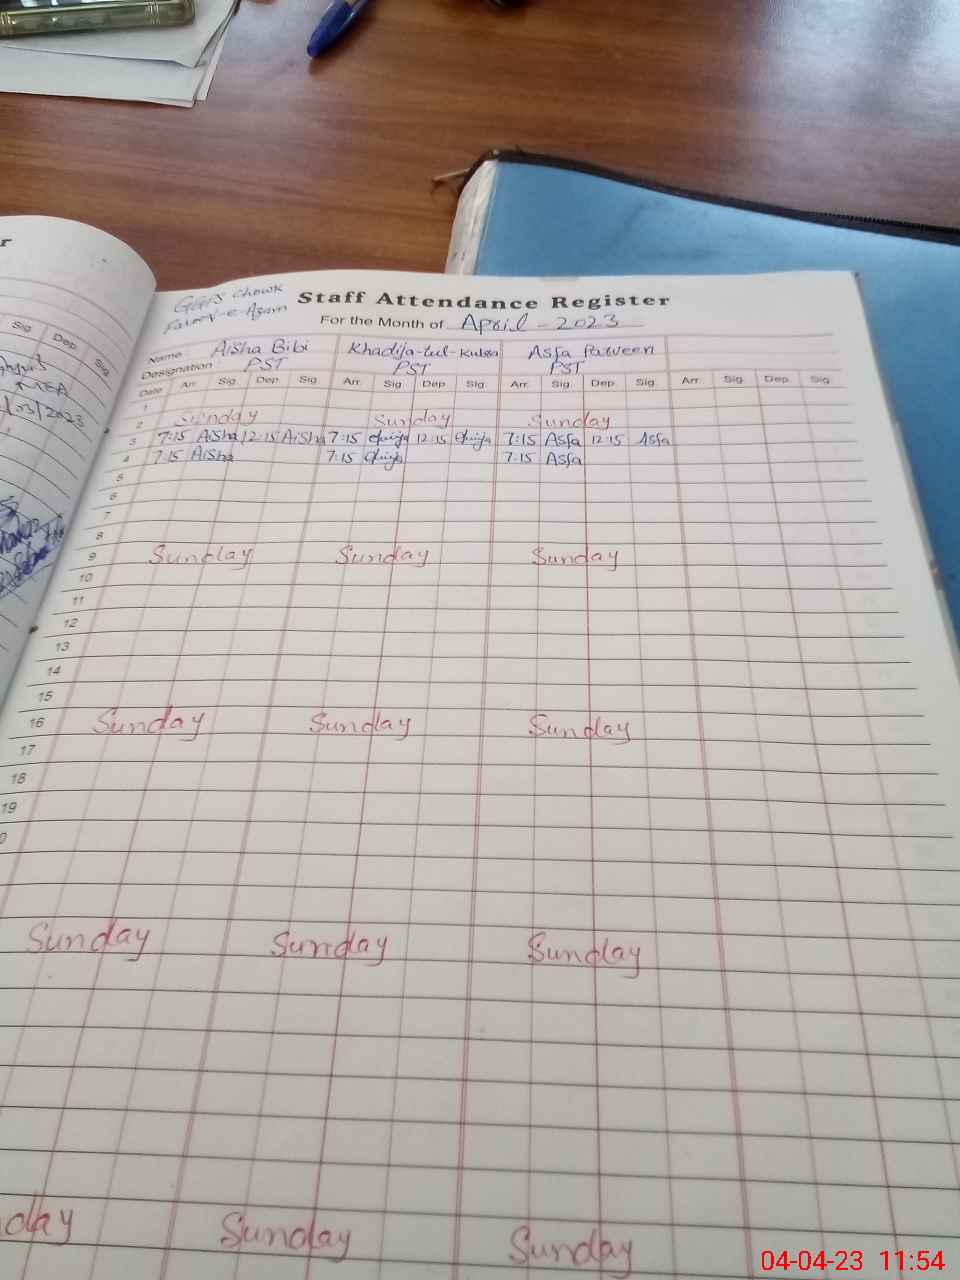 r
Sig Dep Sig
/03/2023
GGPS Chowk
Farooq-e-Azam
Staff Attendance Register
For the Month of April - 2023
Name Aisha Bibi Khadija-tul-Kubra Asfa Parveen
Designation PST PST PST
Date Arr. Sig. Dep. Sig. Arr. Sig. Dep. Sig. Arr. Sig. Dep. Sig. Arr. Sig. Dep. Sig.
1
2 Sunday Sunday Sunday
3 7:15 Aisha 12:15 Aisha 7:15 12:15 7:15 Asfa 12:15 Asfa
4 7:15 Aisha 7:15 7:15 Asfa
5
6
7
8
9 Sunday Sunday Sunday
10
11
12
13
14
15
16 Sunday Sunday Sunday
17
18
19
0
Sunday Sunday Sunday
day Sunday Sunday
04-04-23 11:54